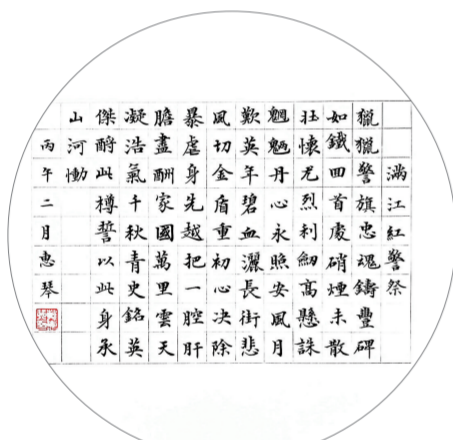 滿江紅警祭
獵獵警旗忠魂鑄豐碑
如鐵回首處硝煙未散
壯懷尤烈利劍高懸誅
魍魎丹心永照安風月
歎英年碧血灑長街悲
風切金盾重初心決除
暴虐身先越把一腔肝
膽盡酬家國萬里雲天
凝浩氣千秋青史銘英
傑酹此樽誓以此身承
山河慟
丙午二月惠琴